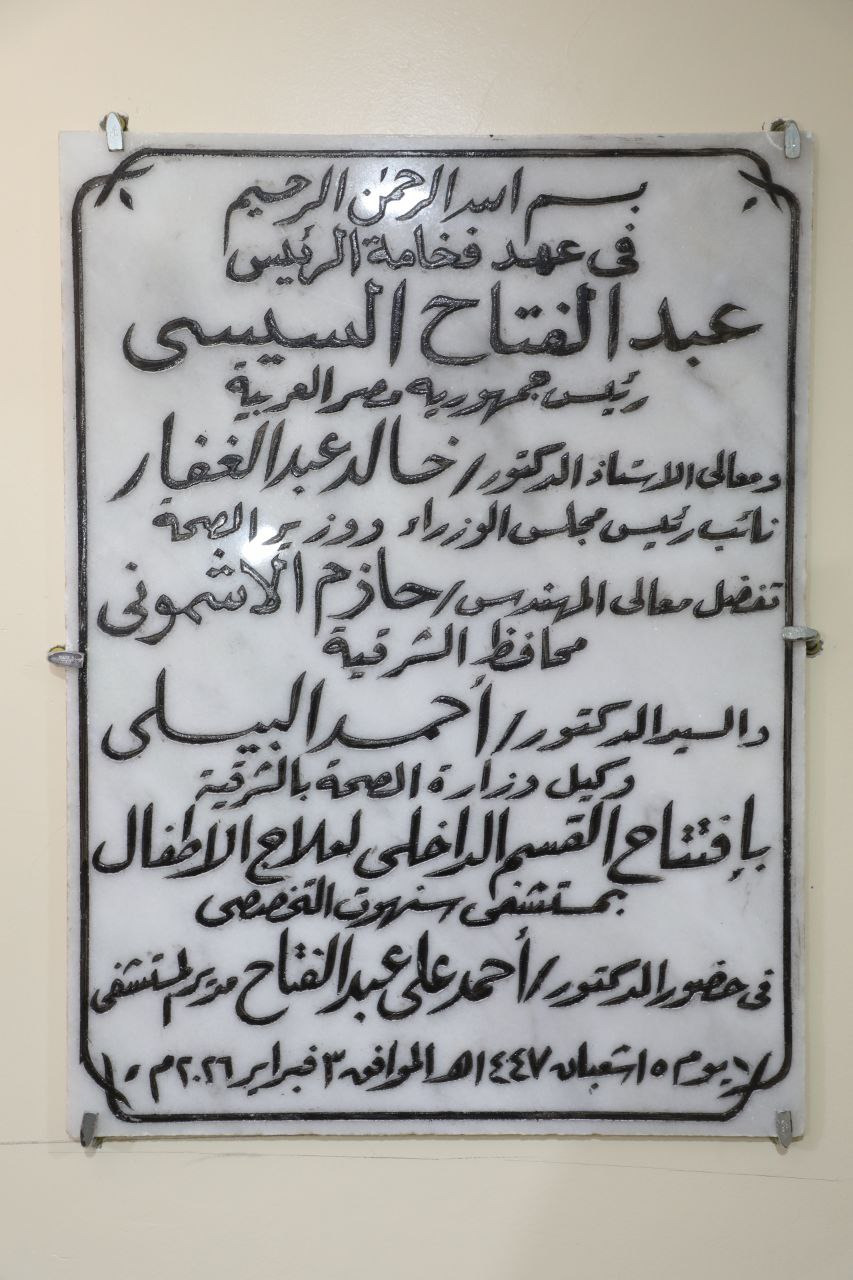 بسم الله الرحمن الرحيم
فى عهد فخامة الرئيس
عبد الفتاح السيسى
رئيس جمهورية مصر العربية
ومعالى الاستاذ الدكتور/ خالد عبد الغفار
نائب رئيس مجلس الوزراء ووزير الصحة
تفضل معالى المهندس/ حازم الاشمونى
محافظ الشرقية
والسيد الدكتور/ أحمد البيلى
وكيل وزارة الصحة بالشرقية
بإفتتاح القسم الداخلى لعلاج الاطفال
بمستشفى سنهوت التخصصى
فى حضور الدكتور/ أحمد على عبد الفتاح مدير المستشفى
يوم ١٥ شعبان ١٤٤٧هـ الموافق ٣ فبراير ٢٠٢٦م